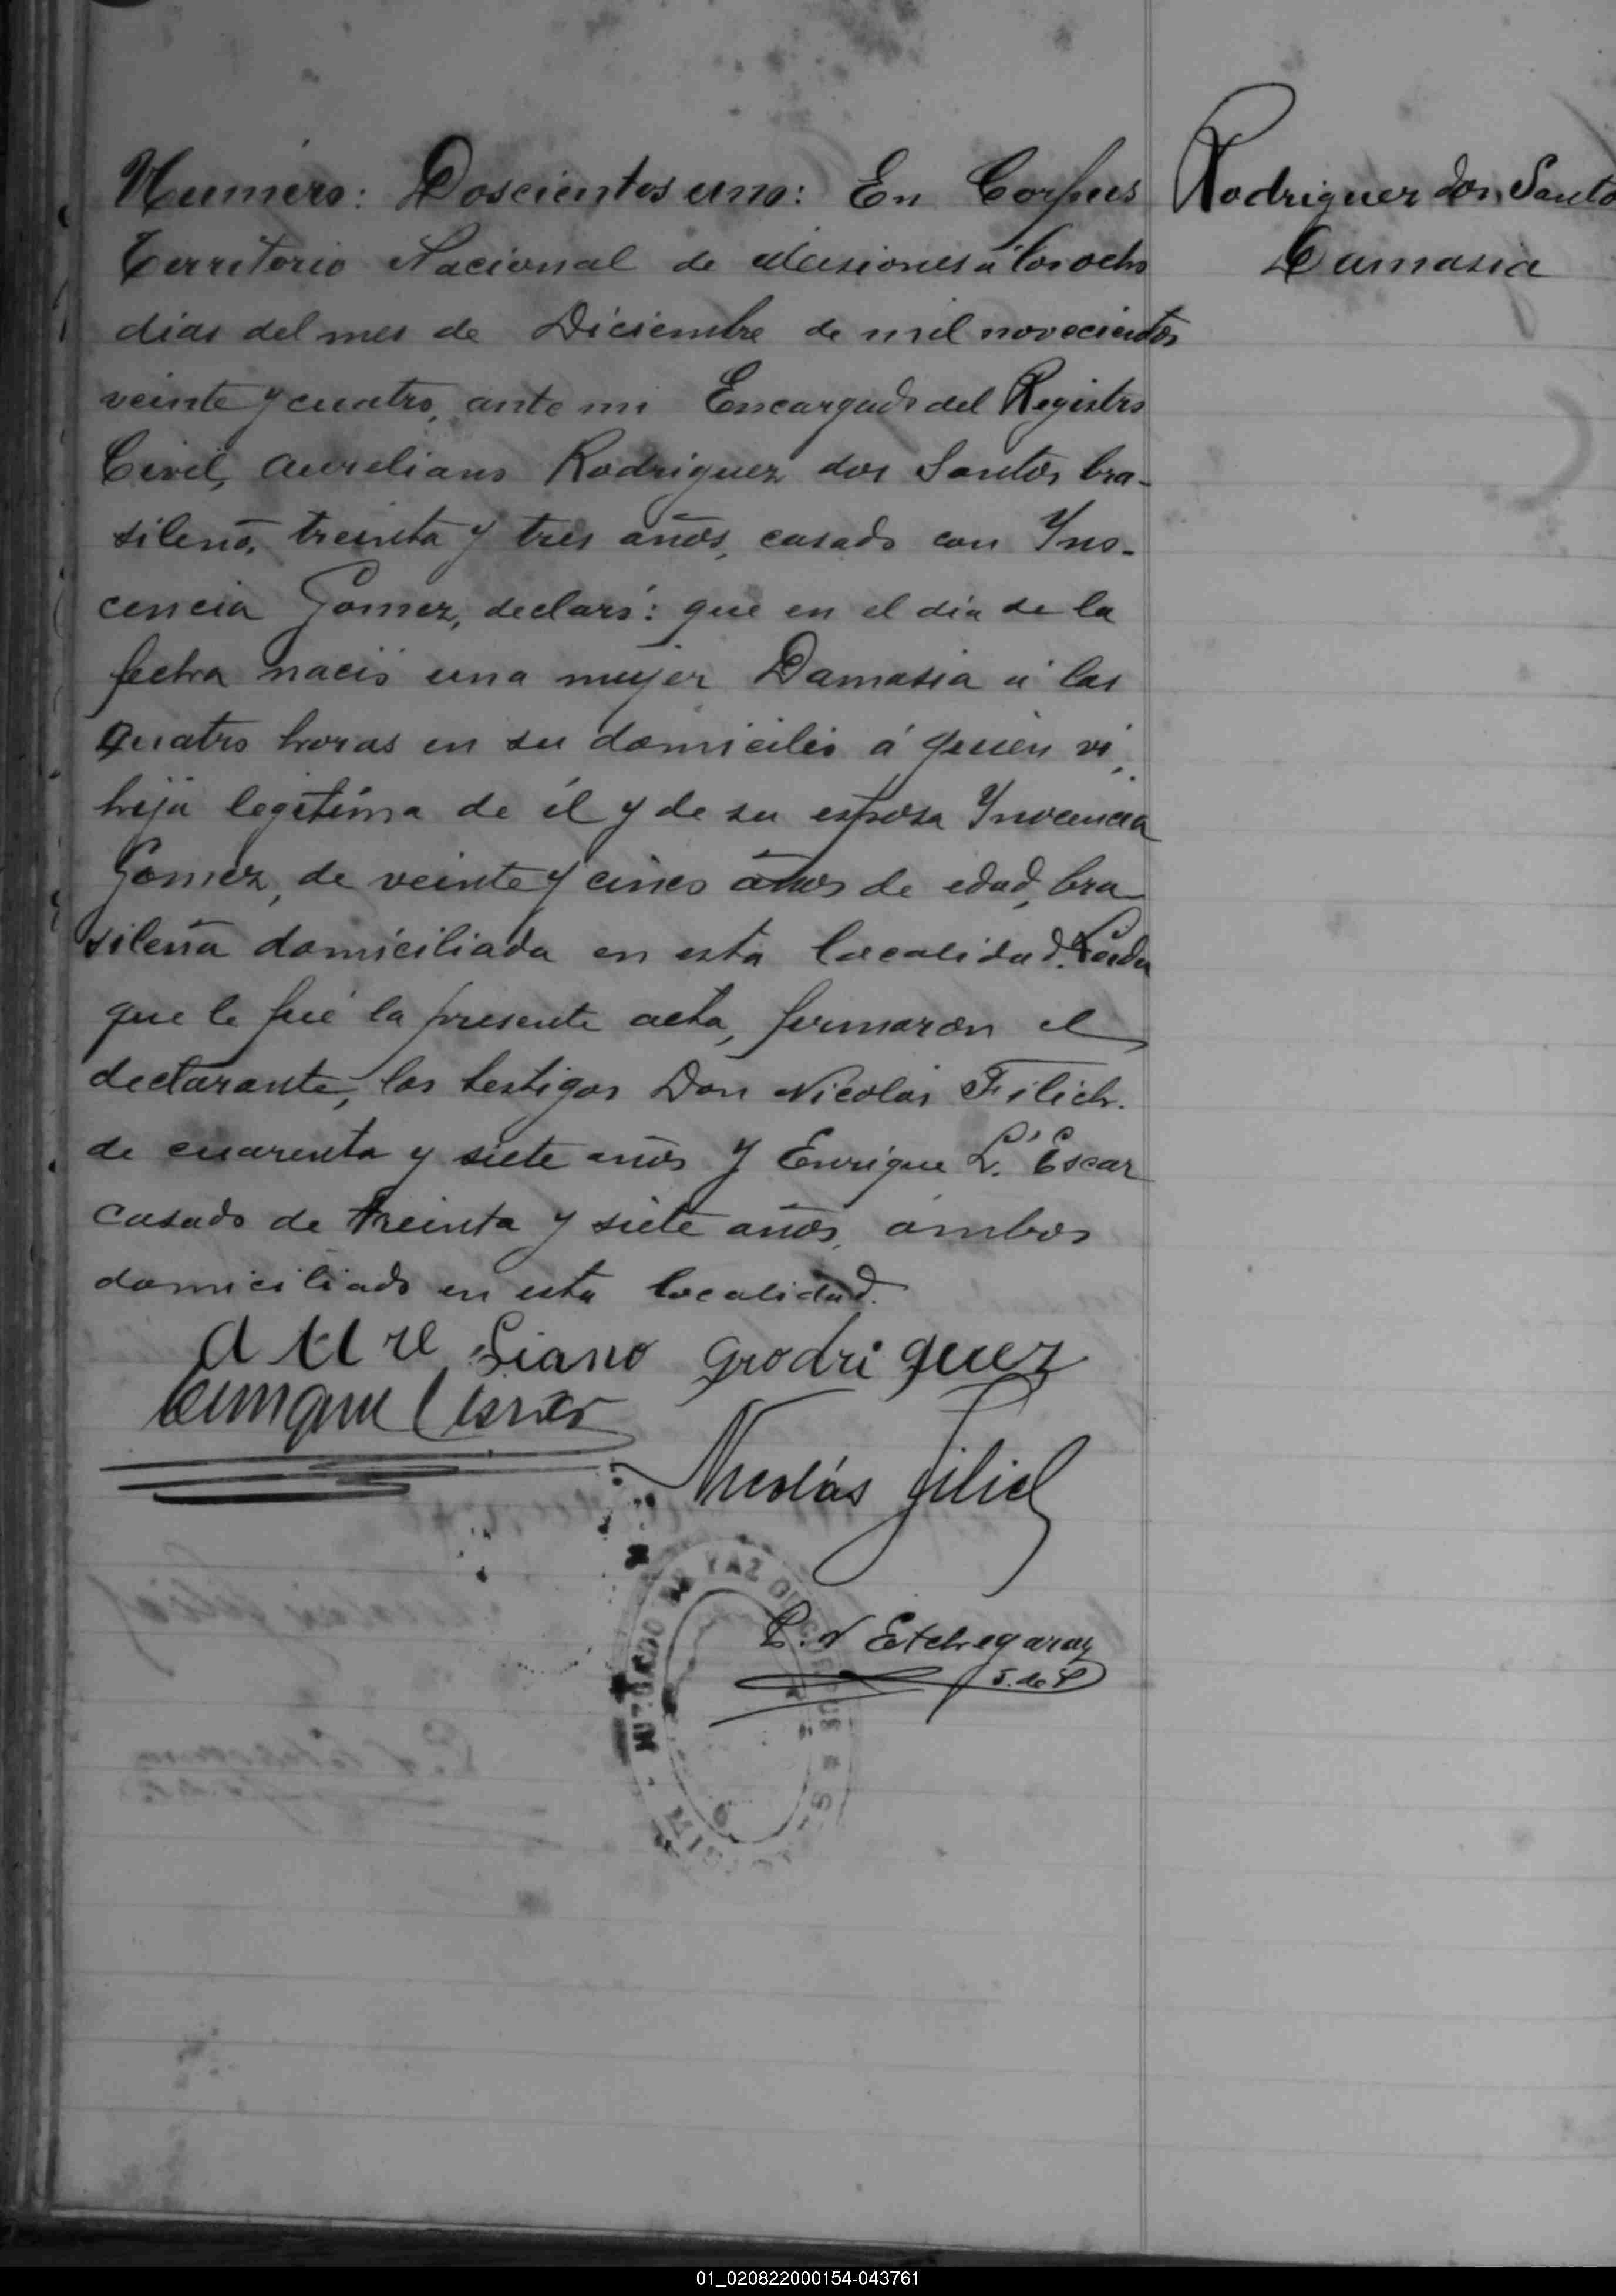 Numero: Doscientos uno: En Corpus
Territorio Nacional de Misiones á los ocho
dias del mes de Diciembre de mil novecientos
veinte y cuatro, ante mi Encargado del Registro
Civil, Aureliano Rodriguez dos Santos bra-
sileño, treinta y tres años, casado con Yno-
cencia Gomez, declaró: que en el dia de la
fecha nació una mujer Damasia á las
quatro horas en su domicilio á quien vi,
hija legítima de él y de su esposa Ynocencia
Gomez, de veinte y cinco años de edad, bra
sileña domiciliada en esta localidad. Leida
que le fué la presente acta, firmaron el
declarante, los testigos Don Nicolás Filich.
de cuarenta y siete años y Enrique L'Escar
casado de treinta y siete años, ambos
domiciliado en esta localidad.
Rodriguez dos Santo
Damasia
Aureliano Grodriguez
Enrique
Nicolás Filich
P. N Etchegaray
J. de P
JUZGADO DE PAZ DE CORPUS
MISIONES
01_020822000154-043761